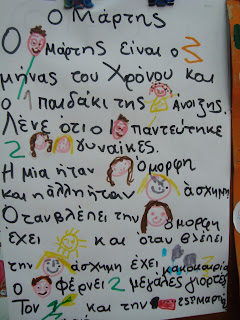 Ο Μάρτης
Ο Μάρτης είναι ο 3
μήνας του Χρόνου και
ο 1 παιδάκι της Άνοιξης.
Λένε ότι ο παντεύτηκε
2 γυναίκες.
Η μια ήταν όμορφη
και η άλλη ήταν άσχημη
Οταν βλέπει την όμορφη
έχει και όταν βλέπει
την άσχημη έχει κακοκαιρία
Ο φέρνει 2 μεγάλες γιορτές
Τον και την 25 Μαρτί